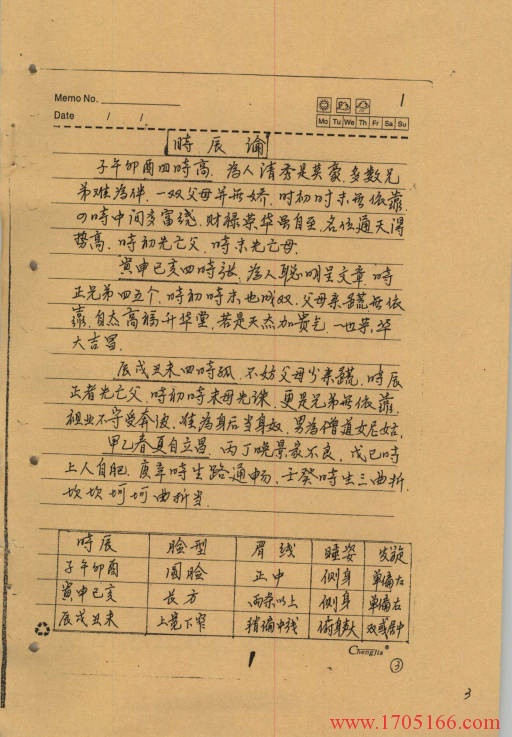 Memo No.
1
Date / /
Mo Tu We Th Fr Sa Su
時辰论
子午卯酉四時高，为人清秀是英豪，多数兄
弟难为伴，一双父母并無娇，时初时末無依靠，
四時中间多富绕，财禄荣华虽自至，名位通天得
势高，時初先亡父，時末先亡母．
寅申已亥四時张，为人聪明呈文章，時
正兄弟四五个，時初時末也成双，父母亲疏無依
靠，自杰高福升华堂，若是天杰加贵乞，一也荣华
大吉昌．
辰戌丑未四時孤，不妨父母少亲疏，時辰
正者先亡父，時初時末母先诛，更是兄弟無依靠，
祖业不守受奔波，难为身后当身奴，男为僧道女尼姑．
甲乙春夏自立昌，丙丁晚景最不良，戊已時
上人自肥，庚辛時生路通畅，壬癸時生三曲折，
坎坎坷坷曲折当．
時辰 脸型 眉线 睡姿 发旋
子午卯酉 圆脸 正中 侧身 单偏左
寅申已亥 长方 两条以上 侧身 单偏右
辰戌丑未 上宽下窄 稍偏中线 俯身大 双或居中
Chengjia
1
③
3
www.1705166.com